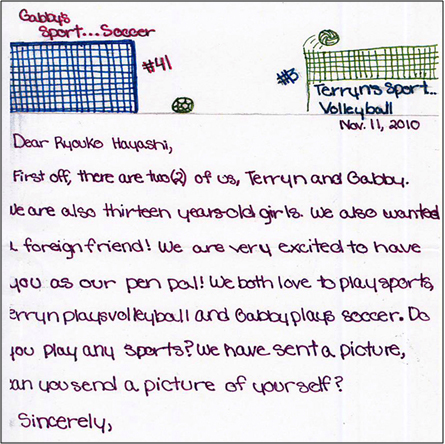 Gabby's
Sport...Soccer
#41
#5
Terryn's Sport...
Volleyball
Nov. 11, 2010
Dear Ryouko Hayashi,
First off, there are two(2) of us, Terryn and Gabby.
We are also thirteen years old girls. We also wanted
a foreign friend! We are very excited to have
you as our pen pal! We both love to play sports,
erryn plays volleyball and Gabby plays soccer. Do
you play any sports? We have sent a picture,
can you send a picture of yourself?
Sincerely,